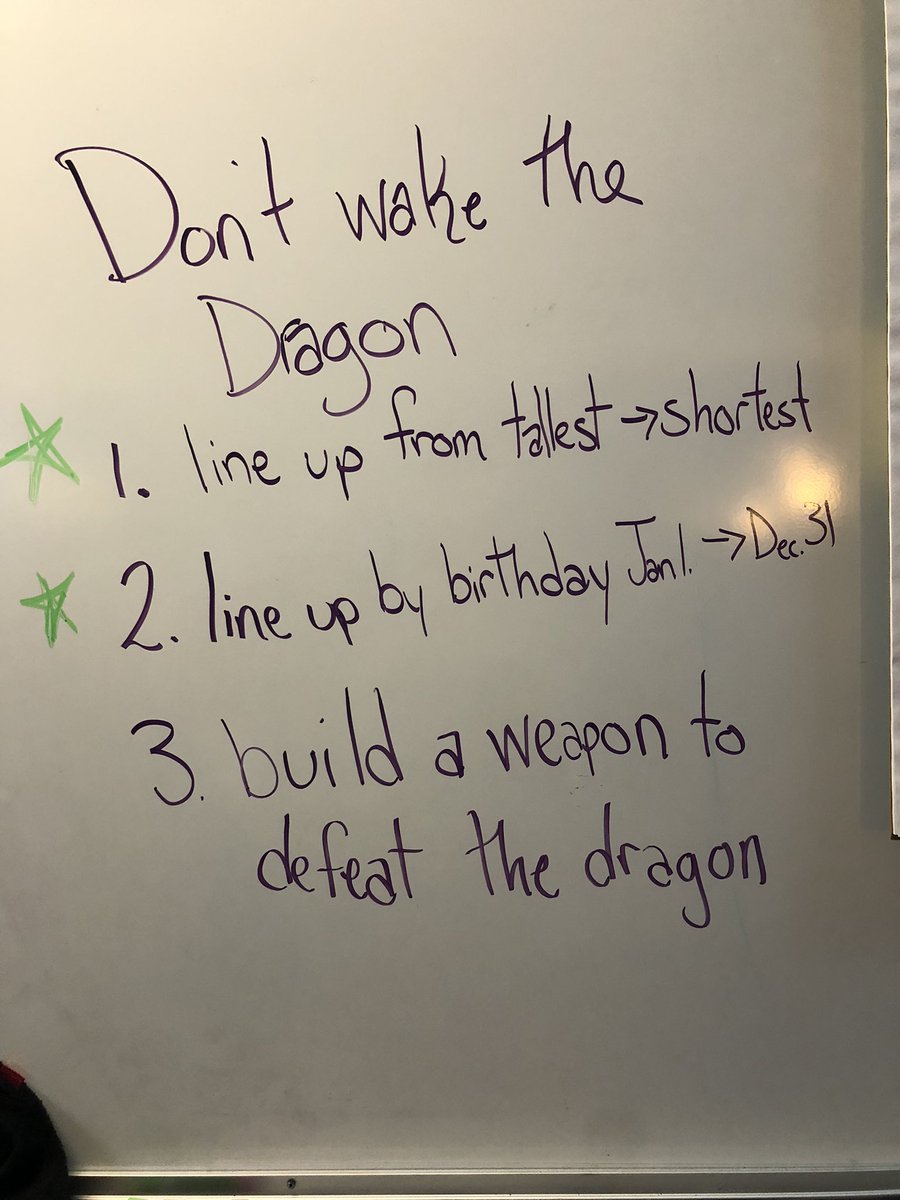 Don't wake the
Dragon
1. line up from tallest → shortest
2. line up by birthday Jan 1. → Dec. 31
3. build a weapon to
defeat the dragon